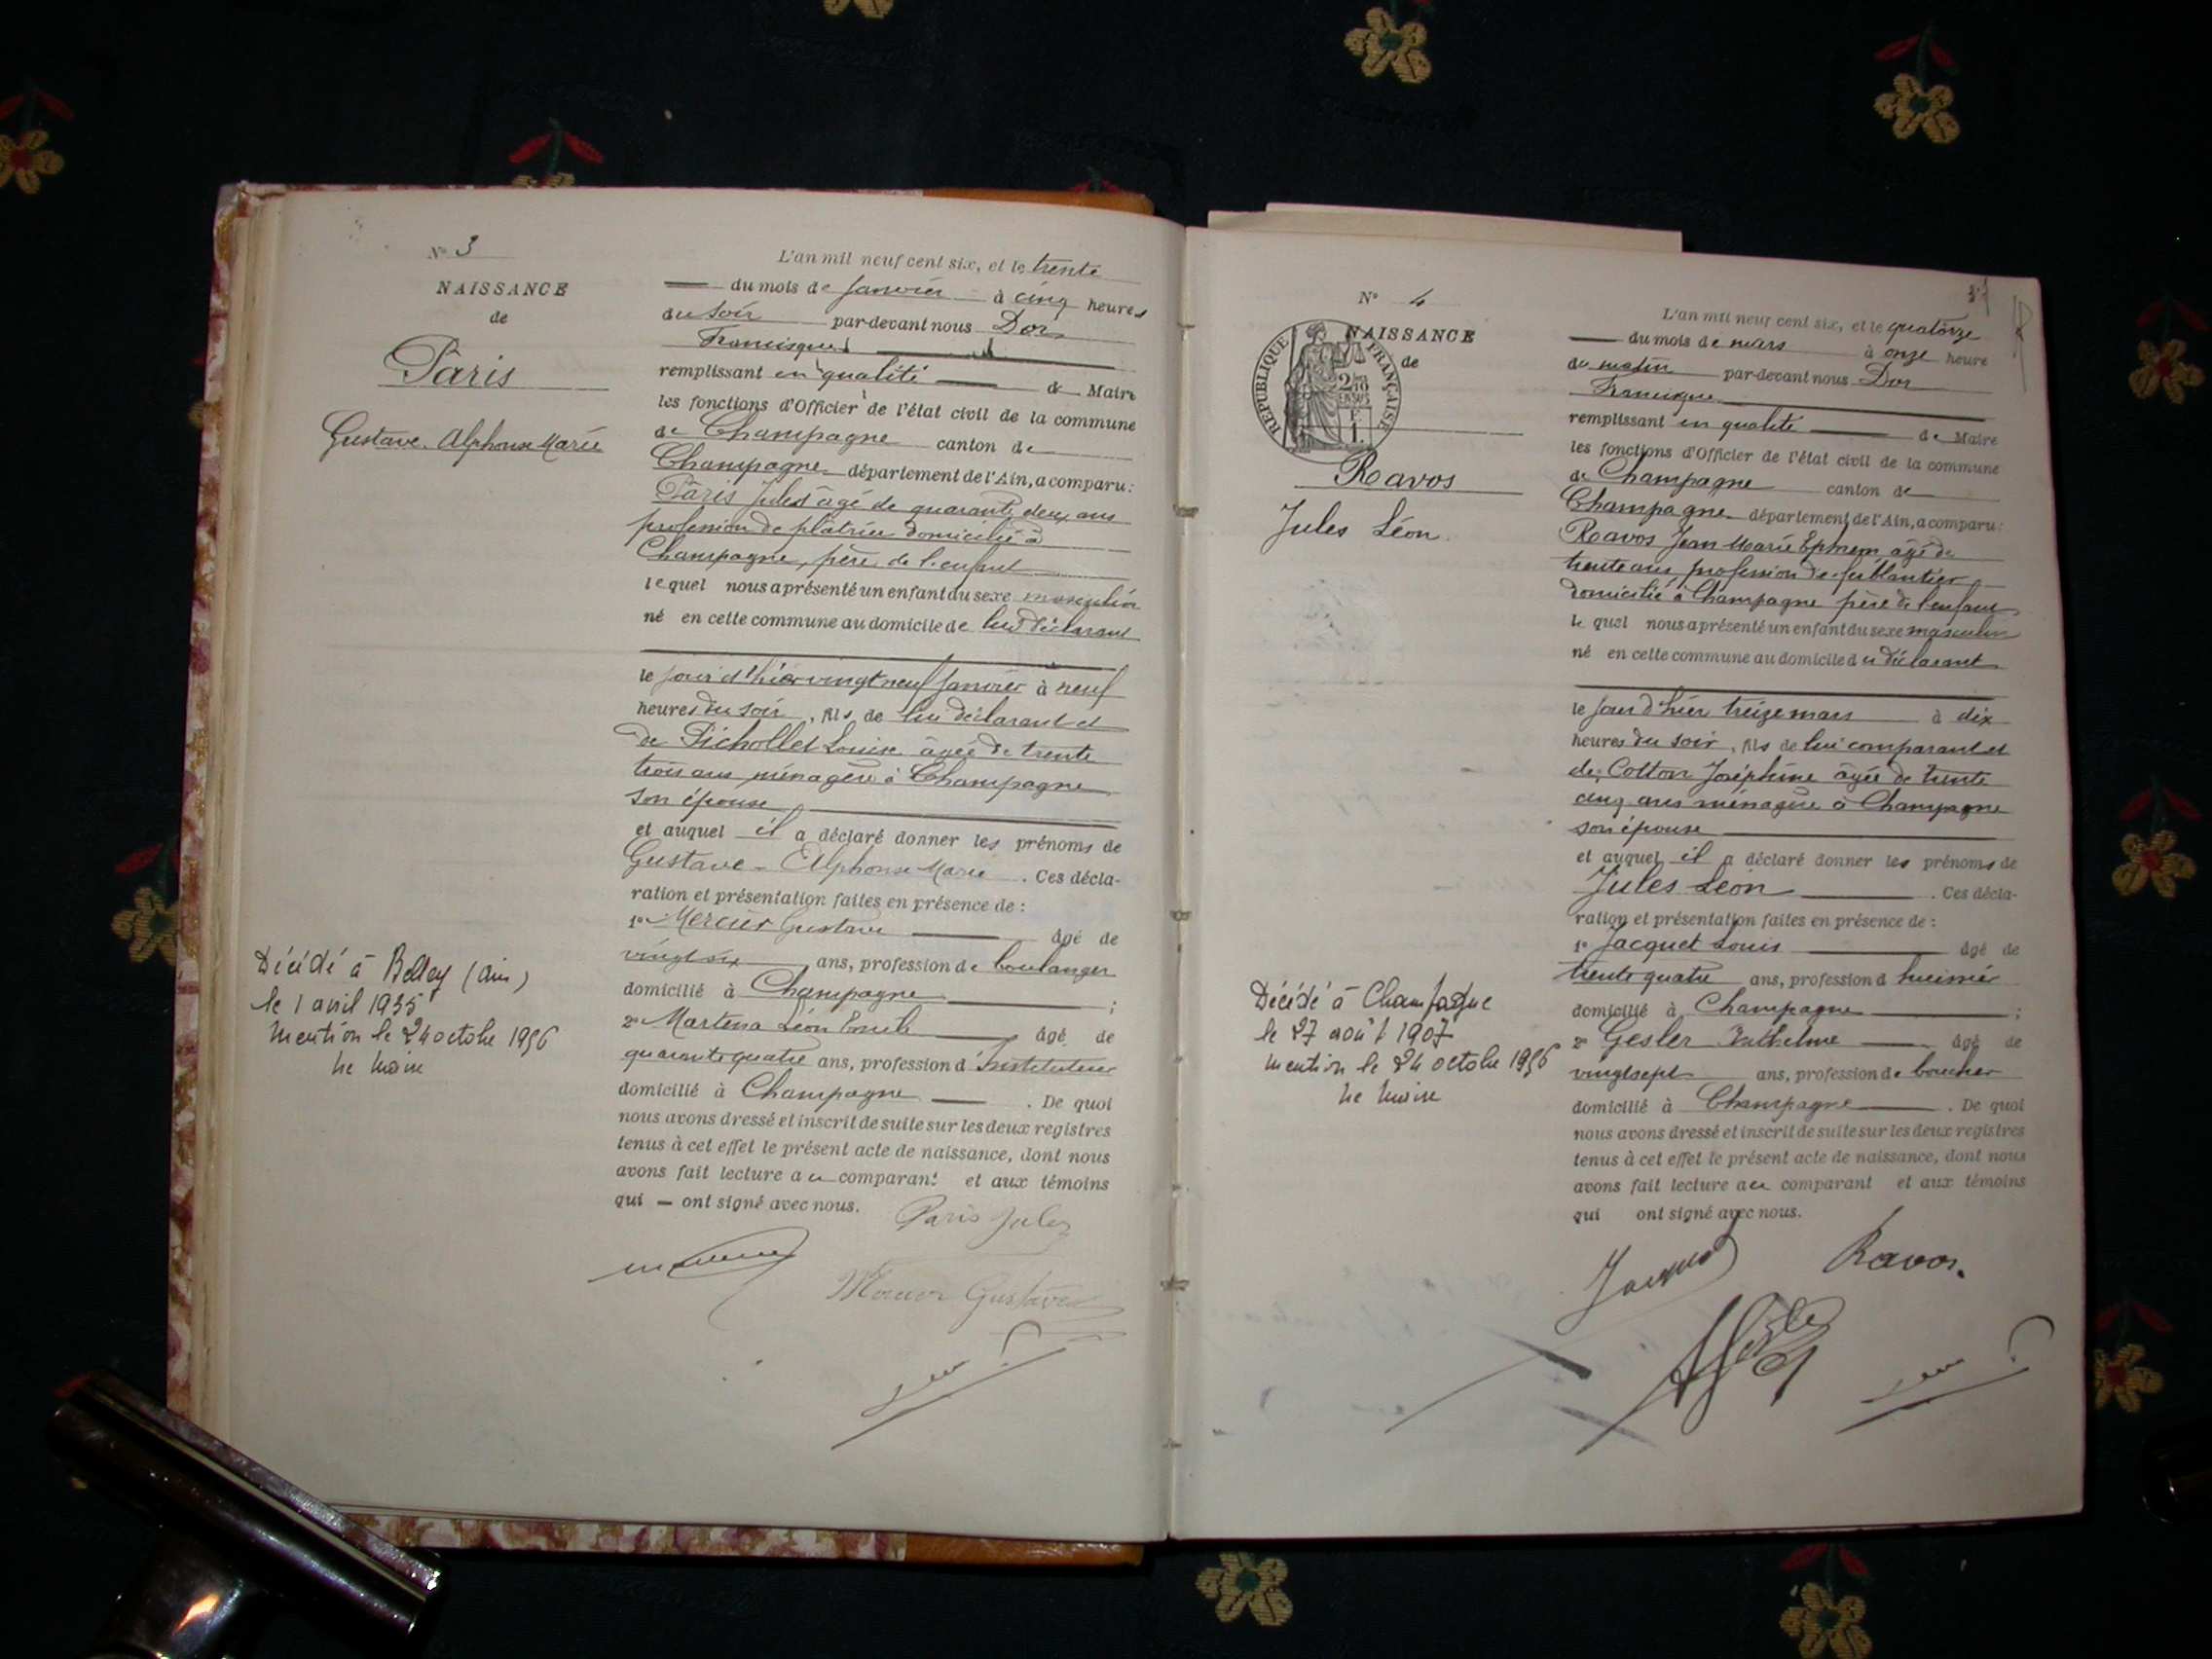 N° 3
NAISSANCE
de
Pâris
Gustave Alphonse Marie
Décédé à Belley (Ain)
le 1 avril 1935
Mention le 24 octobre 1956
Le Maire
L'an mil neuf cent six, et le trente
du mois de Janvier à cinq heures
du soir par-devant nous Dor
Francisque
remplissant en qualité de Maire
les fonctions d'Officier de l'état civil de la commune
de Champagne canton de
Champagne département de l'Ain, a comparu :
Pâris Jules âgé de quarante deux ans
profession de plâtrier domicilié à
Champagne, père de l'enfant
lequel nous a présenté un enfant du sexe masculin
né en cette commune au domicile de lui déclarant
le jour d'hier vingt neuf Janvier à neuf
heures du soir, fils de lui déclarant et
de Pichollet Louise âgée de trente
trois ans ménagère à Champagne
son épouse
et auquel il a déclaré donner les prénoms de
Gustave - Alphonse Marie . Ces décla-
ration et présentation faites en présence de :
1° Mercier Gustave âgé de
vingt six ans, profession de boulanger
domicilié à Champagne ;
2° Léon Emile âgé de
quarante quatre ans, profession d'Instituteur
domicilié à Champagne . De quoi
nous avons dressé et inscrit de suite sur les deux registres
tenus à cet effet le présent acte de naissance, dont nous
avons fait lecture au comparant et aux témoins
qui — ont signé avec nous.
Paris Jules
Mercier Gustave
N° 4
NAISSANCE
de
RÉPUBLIQUE FRANÇAISE
Ravos
Jules Léon
Décédé à Champagne
le 27 août 1907
Mention le 24 octobre 1956
Le Maire
L'an mil neuf cent six, et le quatorze
du mois de mars à onze heure
du matin par-devant nous Dor
Francisque
remplissant en qualité de Maire
les fonctions d'Officier de l'état civil de la commune
de Champagne canton de
Champagne département de l'Ain, a comparu :
Ravos Jean Marie Ephrem âgé de
trente ans profession de ferblantier
domicilié à Champagne père de l'enfant
lequel nous a présenté un enfant du sexe masculin
né en cette commune au domicile du déclarant
le jour d'hier treize mars à dix
heures du soir, fils de lui comparant et
de Cotton Joséphine âgée de trente
cinq ans ménagère à Champagne
son épouse
et auquel il a déclaré donner les prénoms de
Jules Léon . Ces décla-
ration et présentation faites en présence de :
1° Jacquet Louis âgé de
trente quatre ans, profession d'huissier
domicilié à Champagne ;
2° Gesler Anthelme âgé de
vingt sept ans, profession de boucher
domicilié à Champagne . De quoi
nous avons dressé et inscrit de suite sur les deux registres
tenus à cet effet le présent acte de naissance, dont nous
avons fait lecture au comparant et aux témoins
qui ont signé avec nous.
Jacquet Ravos